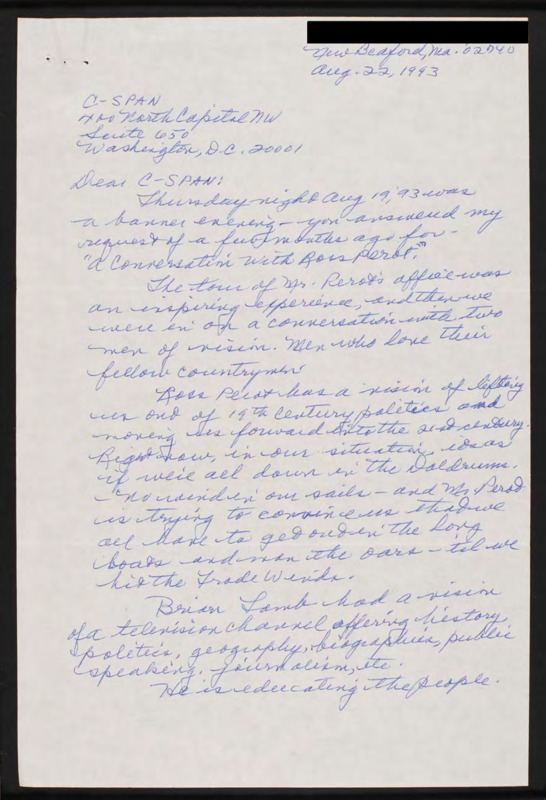 New Bedford, Ma. 02740
Aug. 22, 1993
C-SPAN
400 North Capital NW
Suite 650
Washington, D.C. 20001
Dear C-SPAN:
Thursday night Aug 19, '93 was
a banner evening - you answered my
request of a few months ago for -
"a Conversation with Ross Perot."
The tour of Mr. Perot's office was
an inspiring experience, and then we
were in on a conversation with two
men of vision. Men who love their
fellow countrymen!
Ross Perot has a vision of lifting
us out of 19th Century politics and
moving us forward into the 21st century.
Right now, in our situation, it's as
if we're all down in the Doldrums.
- no wind in our sails - and Mr. Perot
is trying to convince us that we
all have to get out in the long
boats - and man the oars - til we
hit the Trade Winds.
Brian Lamb had a vision
of a television channel offering history,
politics, geography, biographies, public
speaking, journalism, etc.
He is educating the people.